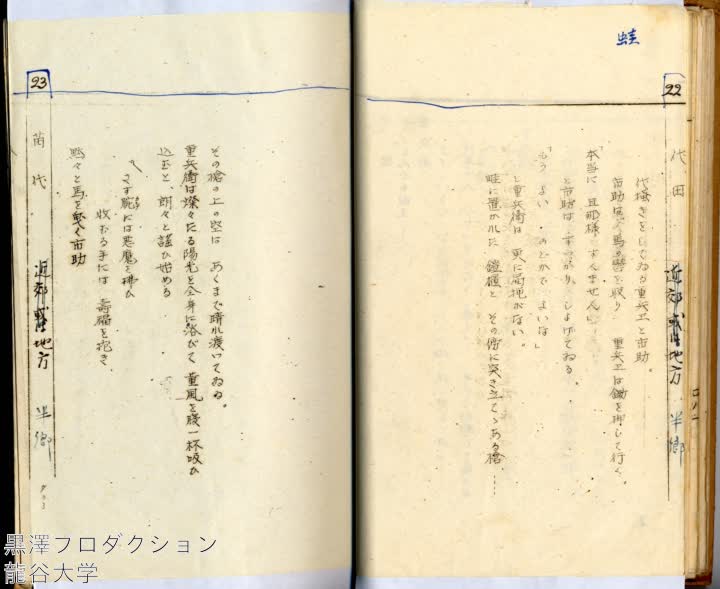 蛙
22
代田
近郊
地方
半郷
代掻きをしてゐる重兵エと市助。
市助は馬の轡を取り 重兵エは鋤を押して行く。
「本当に、旦那様、すんません」
と市助は すつかり しよげてゐる。
「もうよい のどかでよいな」
と重兵衛は 更に屈托がない。
畦に置かれた 鎧櫃と その傍に突き立てゝある槍……
23
苗代
近郊
地方
半郷
その槍の上の空は あくまで晴れ渡つてゐる。
重兵衛は燦々たる陽光を全身に浴びて 薫風を腹一杯吸ひ
込むと、朗々と謡ひ始める
〽さす腕には悪魔を拂ひ
收むる手には 壽福を抱き
黙々と馬を曳く市助
黒澤プロダクション
龍谷大学